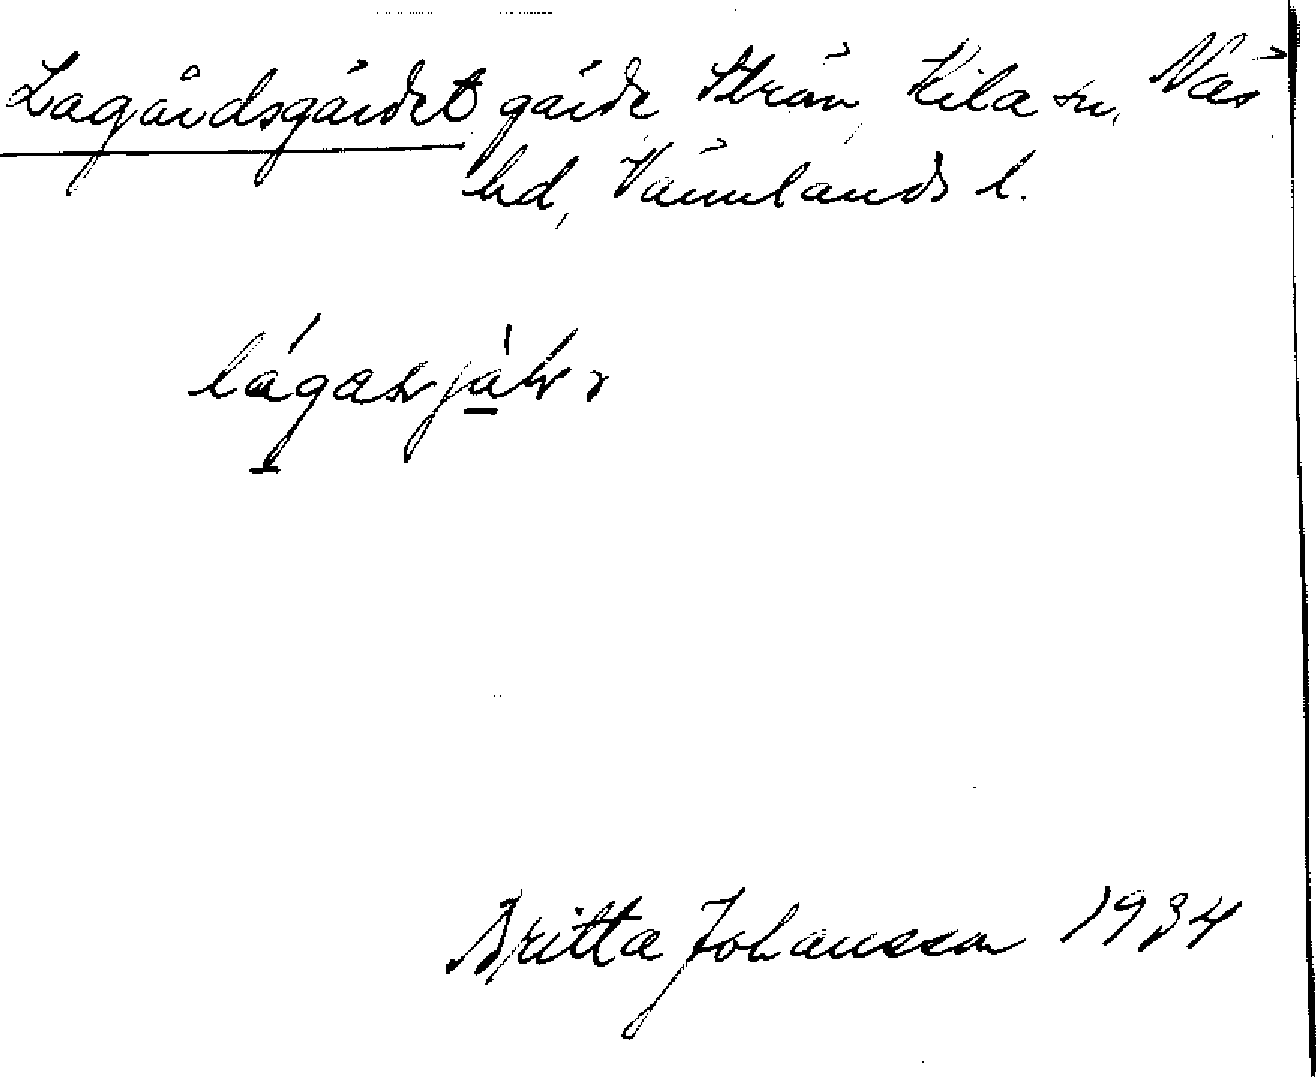 Lagårdsgärdet gärde, Strön, Kila sn, Näs
hd, Värmlands l.
Britta Johansson 1934